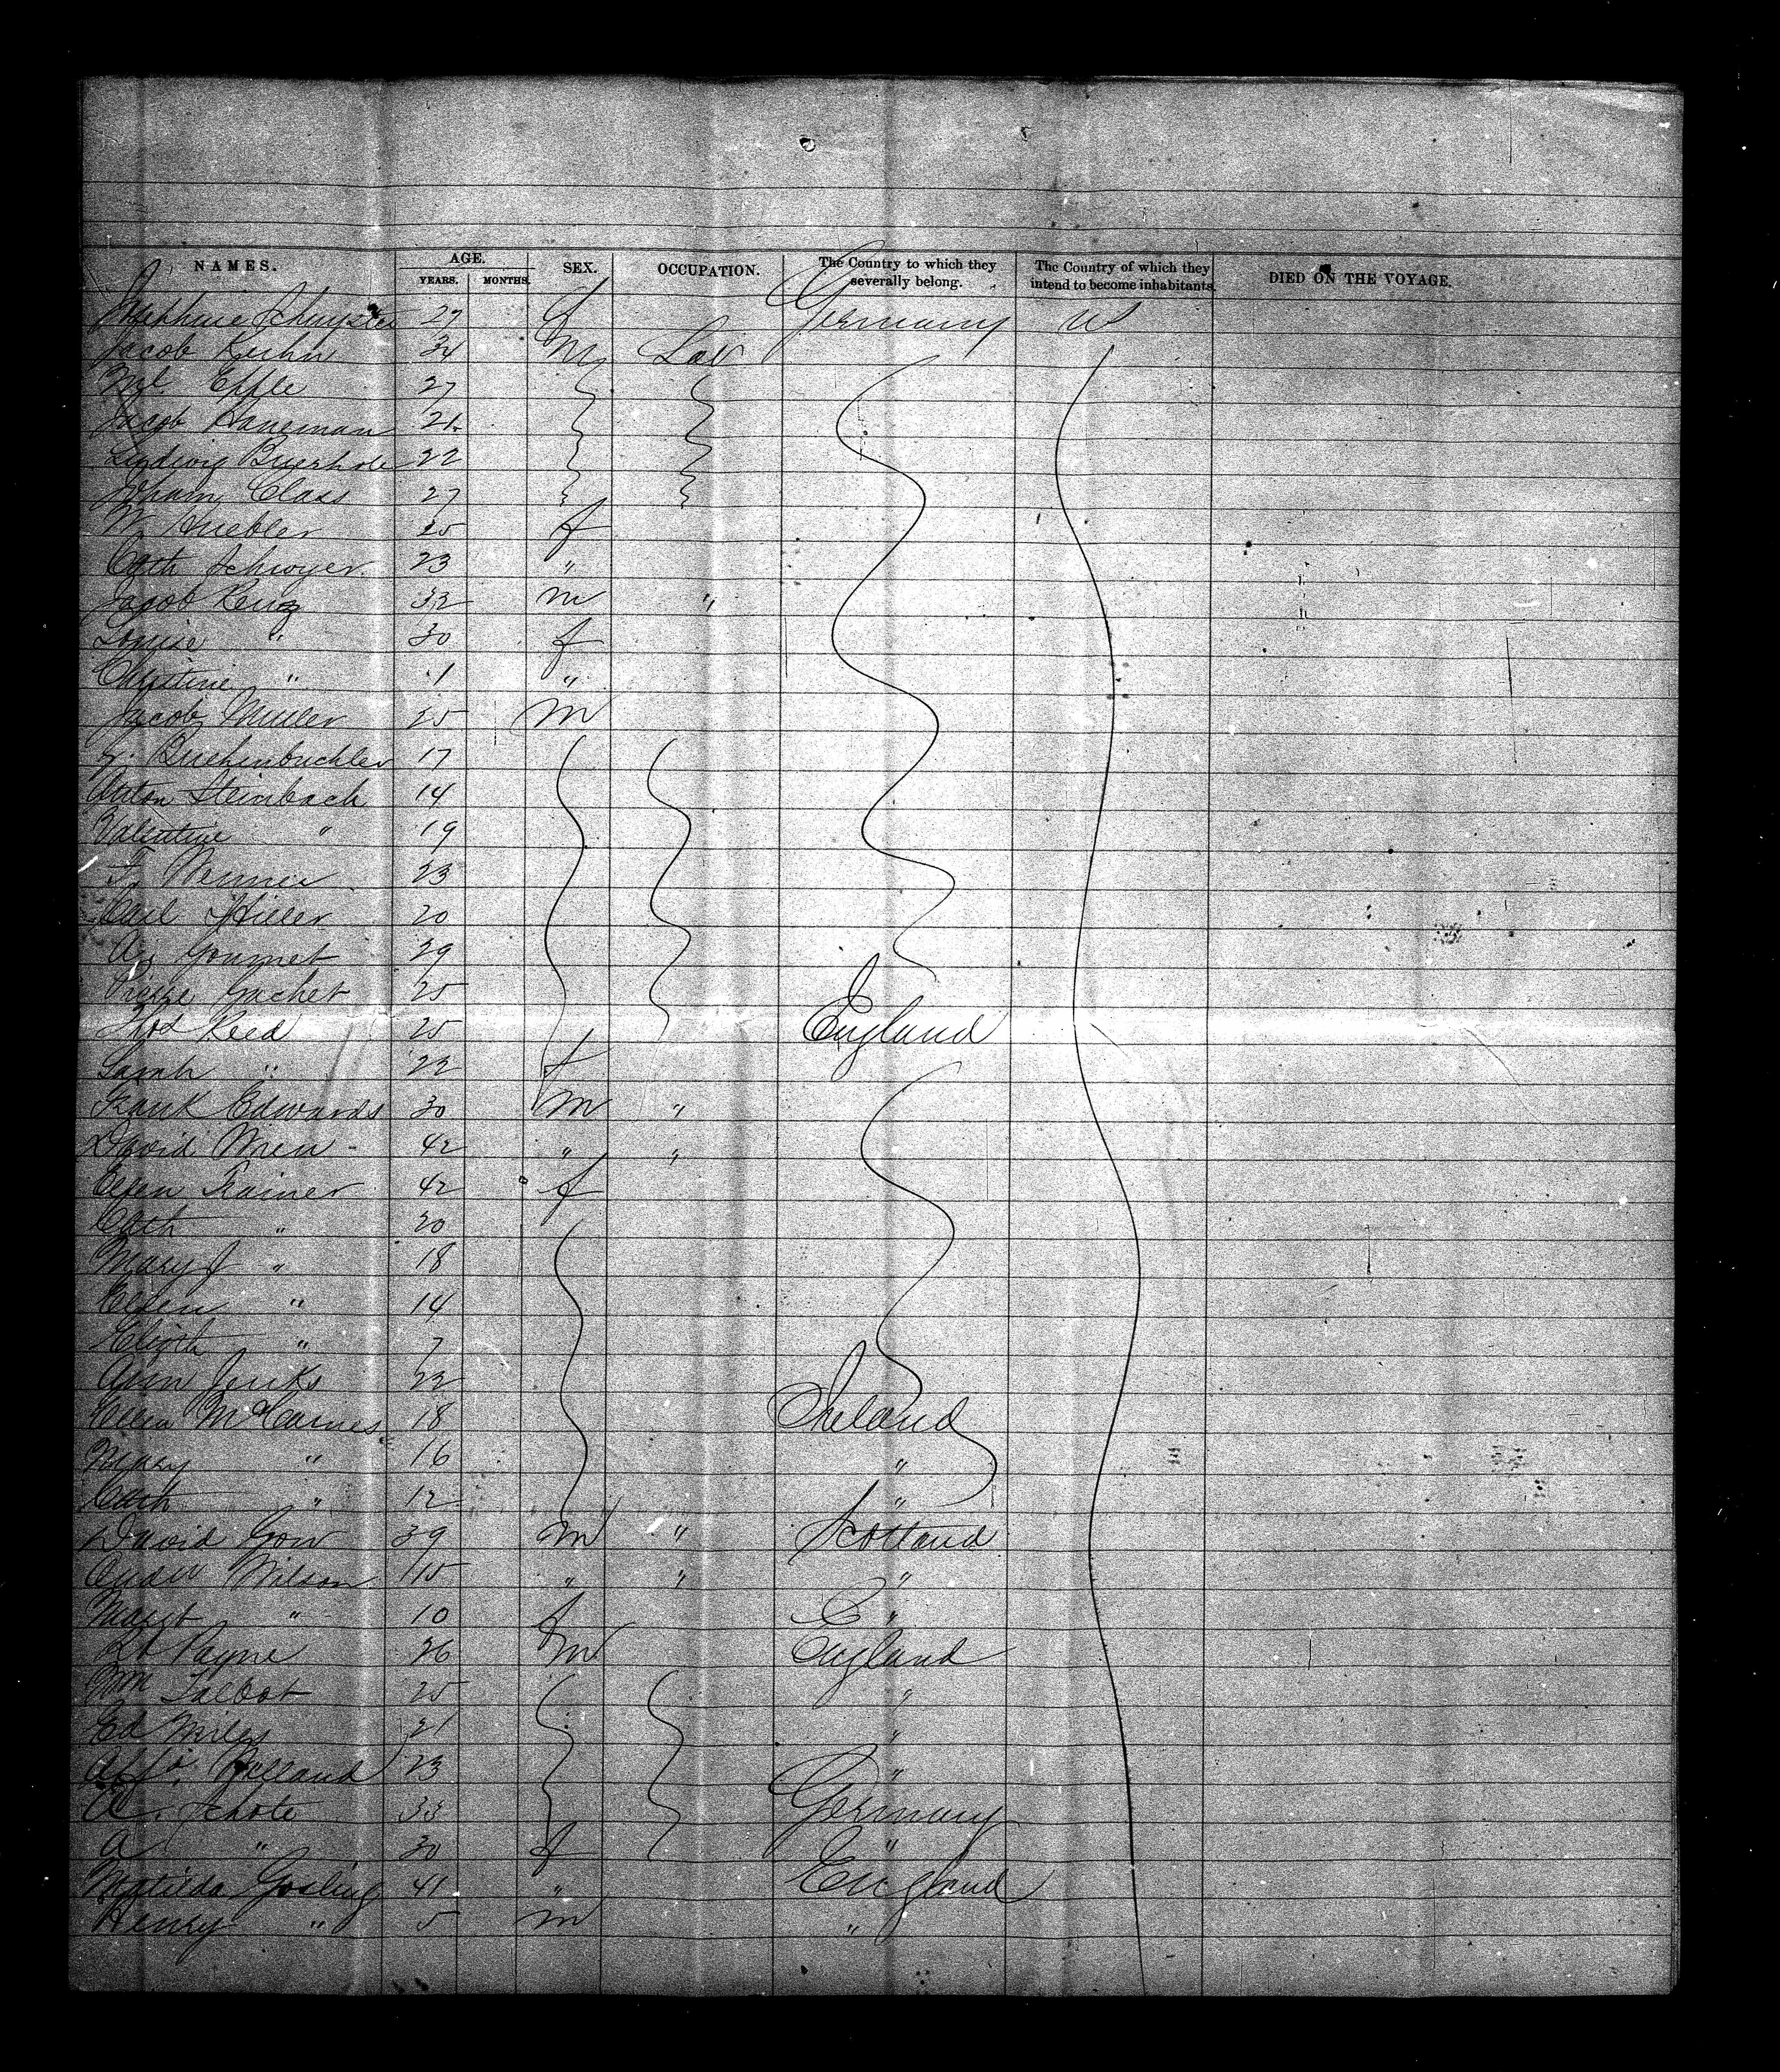 NAMES. AGE. SEX. OCCUPATION. The Country to which they severally belong. The Country of which they intend to become inhabitants. DIED ON THE VOYAGE.
YEARS. MONTHS.
27 f Germany US
Jacob Kuhn 34 M Lab
Effle 27
Jacob Haneman 21
Ludwig 22
Class 27
W Huebler 25 f
Cath Schwyer 23 "
Jacob Renz 32 m "
Louise " 30 f
Christine " 1 "
Jacob Muller 25 M
17
Anton Steinbach 14
Valentine " 19
23
Carl Hiller 20
A. Gourmet 29
Pierre Gachet 25
Thos Reed 25 England
Sarah " 22 f
Frank Edwards 30 M "
David Wren 42 " "
Ellen Trainer 42 f
Cath " 20
Mary J " 18
Ellen " 14
Elizth " 7
Ann Jenks 22
Ellen 18 Ireland
Mary " 16 "
Cath " 12 "
David Gow 39 M " Scotland
Andw Wilson 15 " " "
Margt " 10 f "
Rd Payne 26 M England
Wm Talbot 25 "
Ed Miles 21 "
23 "
A. Schote 33 Germany
A " 30 f "
Matilda Gosling 41 " England
Henry " 5 m "